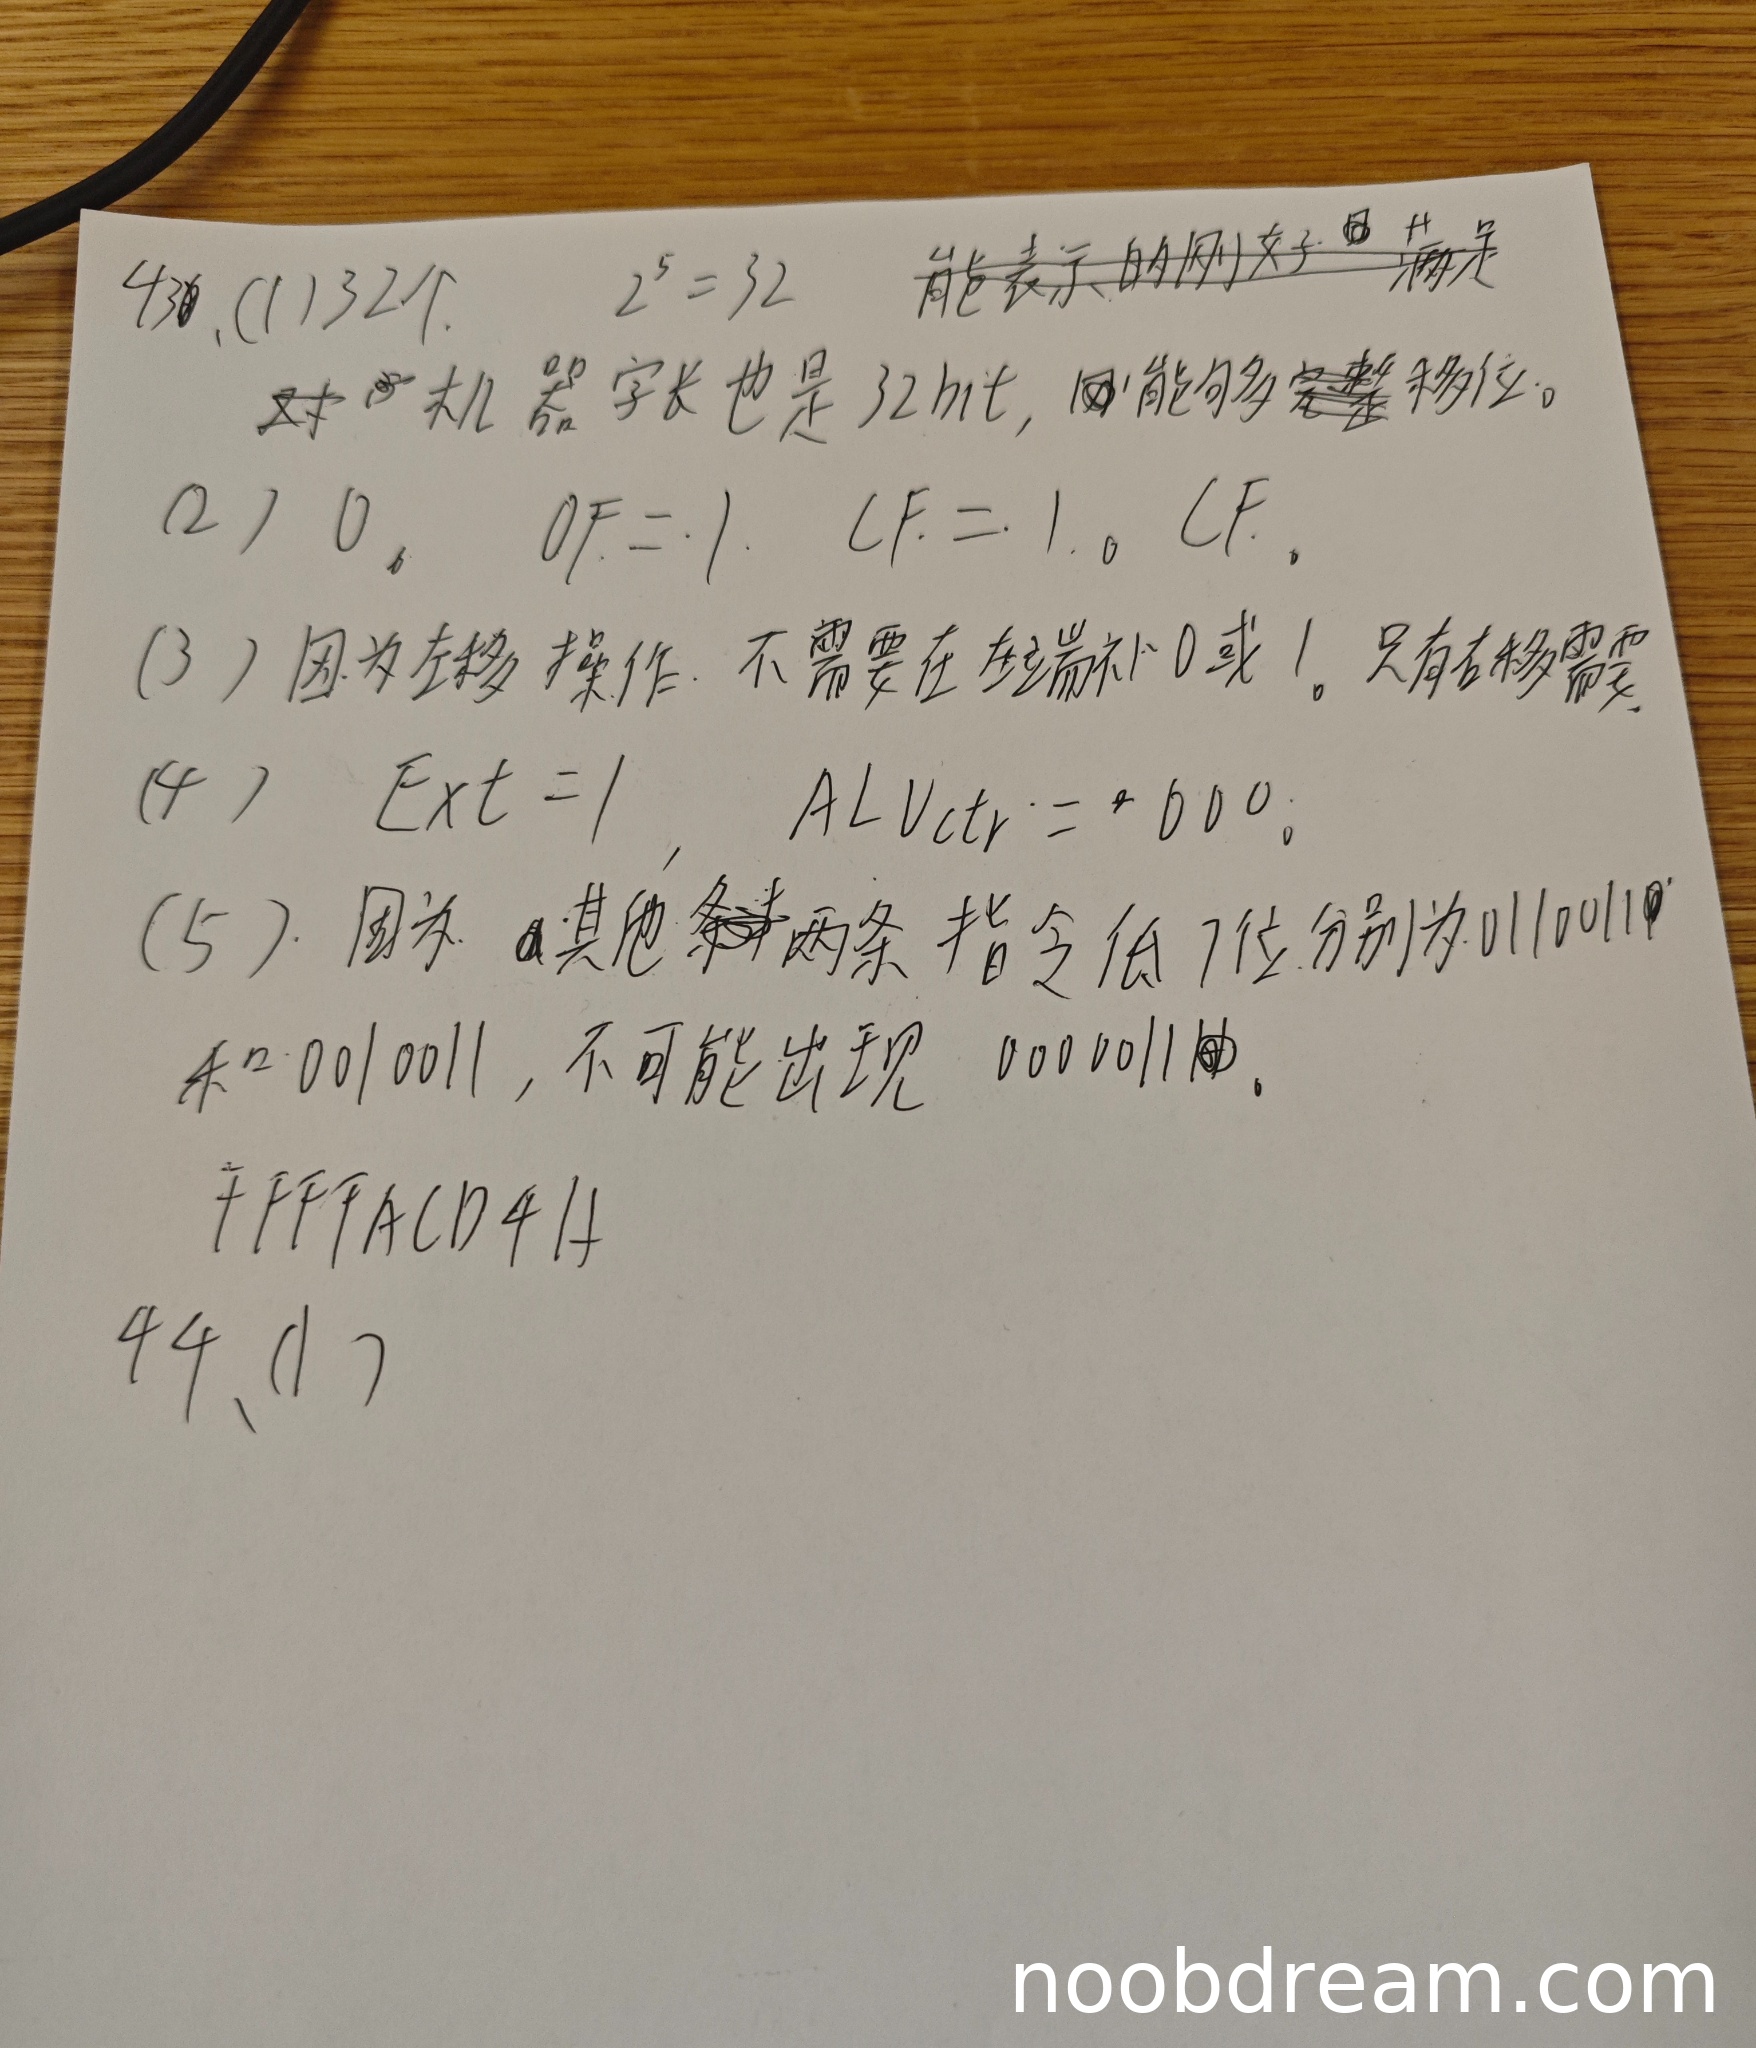 43、(1) 32个. 2^5=32 能表示的刚好 满足
对 机器字长也是32bit, 能够完整移位。
(2) 0。 OF=1. CF=1.。CF.。
(3) 因为左移操作.不需要在左端补0或1。只有右移需要.
(4) Ext=1, ALUctr=000。
(5). 因为.其他 两条指令低7位.分别为.0110011
和0010011, 不可能出现 0000011。
FFFFACD4H
44、(1)
noobdream.com